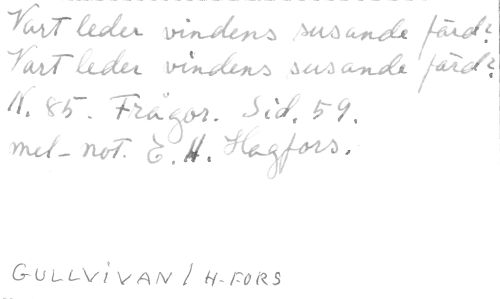 Vart leder vindens susande färd?
Vart leder vindens susande färd?
N. 85. Frågor. Sid. 59.
mel-not. E. H. Hagfors.
GULLVIVAN / H-FORS